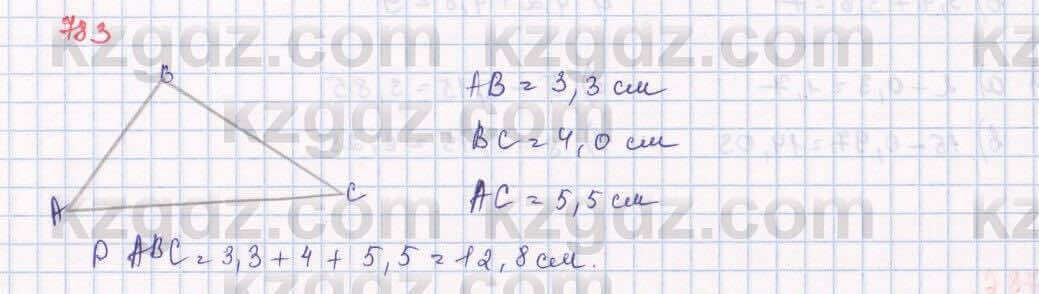 783
B
A
C
AB = 3,3 см
BC = 4,0 см
AC = 5,5 см
P ABC = 3,3 + 4 + 5,5 = 12,8 см.
kzgdz.com